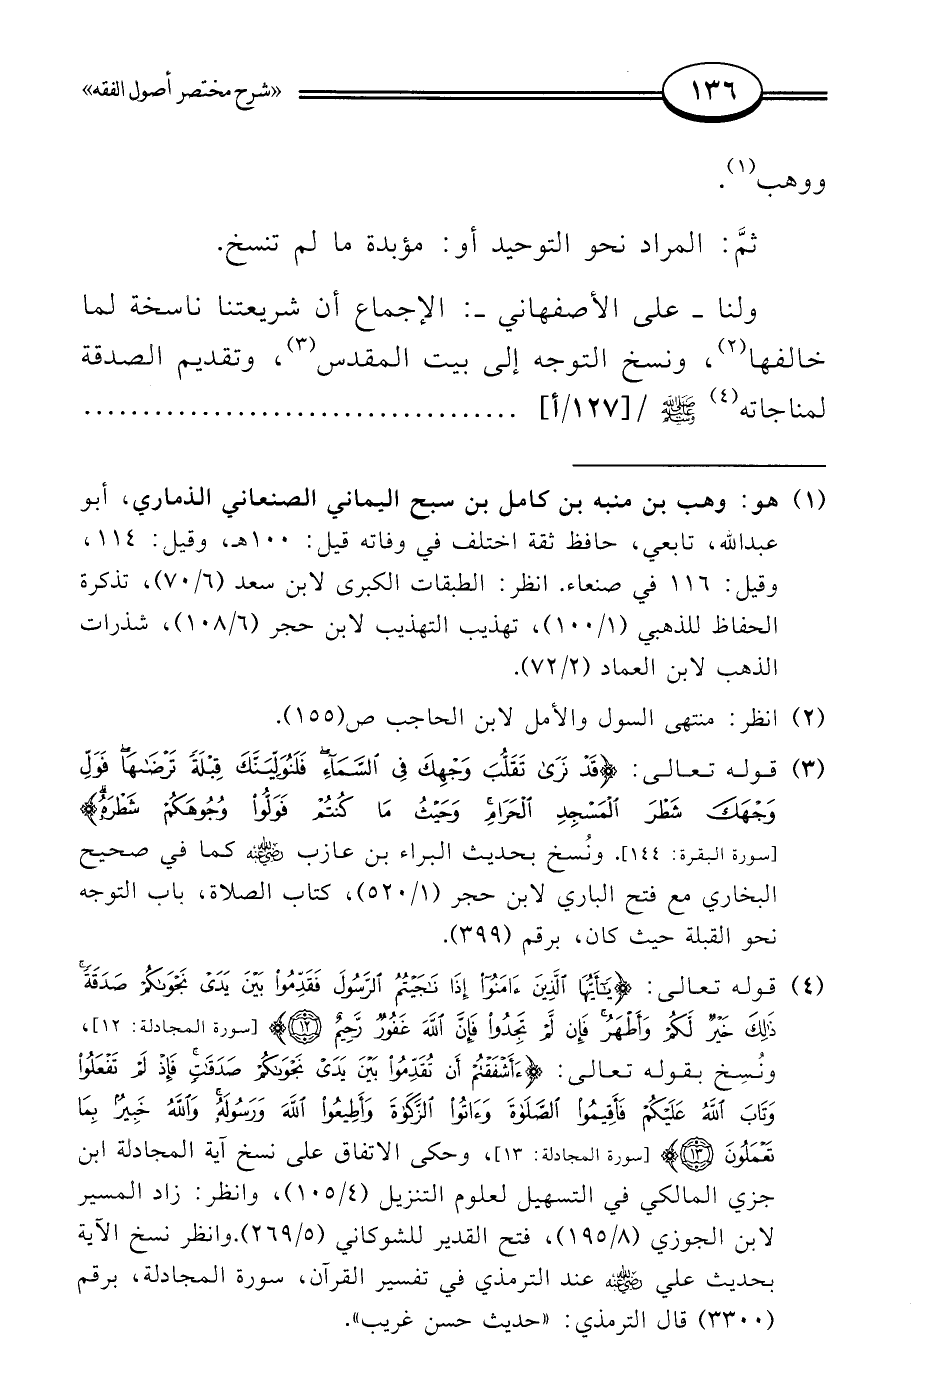 ١٣٦ «شرح مختصر أصول الفقه»
ووهب(١).
ثمَّ: المراد نحو التوحيد أو: مؤبدة ما لم تنسخ.
ولنا ـ على الأصفهاني ـ: الإجماع أن شريعتنا ناسخة لما
خالفها(٢)، ونسخ التوجه إلى بيت المقدس(٣)، وتقديم الصدقة
لمناجاته(٤) ﷺ / [١٢٧/أ] .....................................
(١) هو: وهب بن منبه بن كامل بن سبج اليماني الصنعاني الذماري، أبو
عبدالله، تابعي، حافظ ثقة اختلف في وفاته قيل: ١٠٠هـ، وقيل: ١١٤،
وقيل: ١١٦ في صنعاء. انظر: الطبقات الكبرى لابن سعد (٧٠/٦)، تذكرة
الحفاظ للذهبي (١٠٠/١)، تهذيب التهذيب لابن حجر (١٠٨/٦)، شذرات
الذهب لابن العماد (٧٢/٢).
(٢) انظر: منتهى السول والأمل لابن الحاجب ص(١٥٥).
(٣) قوله تعالى: ﴿قَدْ نَرَىٰ تَقَلُّبَ وَجْهِكَ فِي ٱلسَّمَآءِۖ فَلَنُوَلِّيَنَّكَ قِبْلَةً تَرْضَىٰهَاۚ فَوَلِّ
وَجْهَكَ شَطْرَ ٱلْمَسْجِدِ ٱلْحَرَامِۚ وَحَيْثُ مَا كُنتُمْ فَوَلُّواْ وُجُوهَكُمْ شَطْرَهُۥۗ﴾
[سورة البقرة: ١٤٤]. ونُسخ بحديث البراء بن عازب رضي الله عنه كما في صحيح
البخاري مع فتح الباري لابن حجر (٥٢٠/١)، كتاب الصلاة، باب التوجه
نحو القبلة حيث كان، برقم (٣٩٩).
(٤) قوله تعالى: ﴿يَٰٓأَيُّهَا ٱلَّذِينَ ءَامَنُوٓاْ إِذَا نَٰجَيْتُمُ ٱلرَّسُولَ فَقَدِّمُواْ بَيْنَ يَدَىْ نَجْوَىٰكُمْ صَدَقَةًۚ
ذَٰلِكَ خَيْرٌ لَّكُمْ وَأَطْهَرُۚ فَإِن لَّمْ تَجِدُواْ فَإِنَّ ٱللَّهَ غَفُورٌ رَّحِيمٌ ١٢﴾ [سورة المجادلة: ١٢]،
ونُسِخ بقوله تعالى: ﴿ءَأَشْفَقْتُمْ أَن تُقَدِّمُواْ بَيْنَ يَدَىْ نَجْوَىٰكُمْ صَدَقَٰتٍۚ فَإِذْ لَمْ تَفْعَلُواْ
وَتَابَ ٱللَّهُ عَلَيْكُمْ فَأَقِيمُواْ ٱلصَّلَوٰةَ وَءَاتُواْ ٱلزَّكَوٰةَ وَأَطِيعُواْ ٱللَّهَ وَرَسُولَهُۥۚ وَٱللَّهُ خَبِيرٌۢ بِمَا
تَعْمَلُونَ ١٣﴾ [سورة المجادلة: ١٣]، وحكى الاتفاق على نسخ آية المجادلة ابن
جزي المالكي في التسهيل لعلوم التنزيل (١٠٥/٤)، وانظر: زاد المسير
لابن الجوزي (١٩٥/٨)، فتح القدير للشوكاني (٢٦٩/٥).وانظر نسخ الآية
بحديث علي رضي الله عنه عند الترمذي في تفسير القرآن، سورة المجادلة، برقم
(٣٣٠٠) قال الترمذي: «حديث حسن غريب».